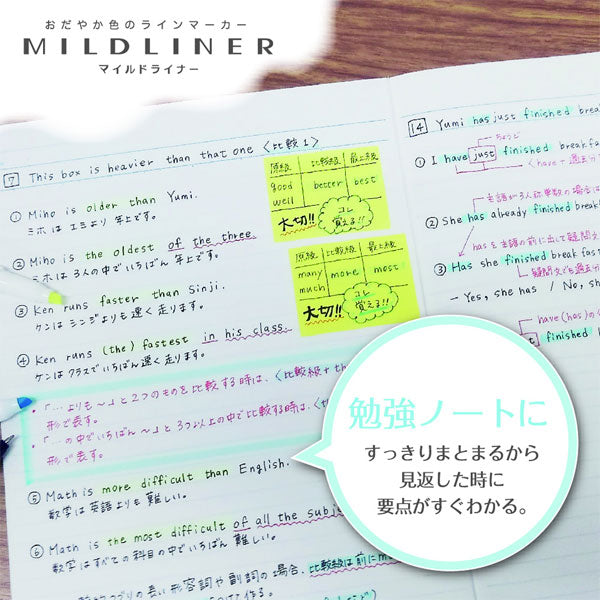 おだやか色のラインマーカー
MILDLINER
マイルドライナー
7 This box is heavier than that one 〈比較1〉
① Miho is older than Yumi.
ミホはユミより年上です。
② Miho is the oldest of the three.
ミホは3人の中でいちばん年上です。
③ Ken runs faster than Shinji.
ケンはシンジよりも速く走ります。
④ Ken runs (the) fastest in his class.
ケンはクラスでいちばん速く走ります。
・「…よりも〜」と2つのものを比較する時は、〈比較級+th
形で表す。
・「…の中でいちばん〜」と3つ以上の中で比較する時は、〈th
形で表す。
⑤ Math is more difficult than English.
数学は英語よりも難しい。
⑥ Math is the most difficult of all the subje
数学はすべての科目の中でいちばん難しい。
長い形容詞や副詞の場合、比較級は前にm
原級 比較級 最上級
good better best
well
大切!!
コレ
覚える!!
原級 比較級 最上級
many more most
much
大切!!
コレ
覚える!!
14 Yumi has just finished brea
ちょうど
① I have just finished breakfa
〈have+過去
主語が3人称単数の場合は
② She has already finished break
hasを主語の前に出して疑問文
③ Has she finished break
疑問文でも過去分
– Yes, she has / No, sh
have(has)の
finished b
勉強ノートに
すっきりまとまるから
見返した時に
要点がすぐわかる。